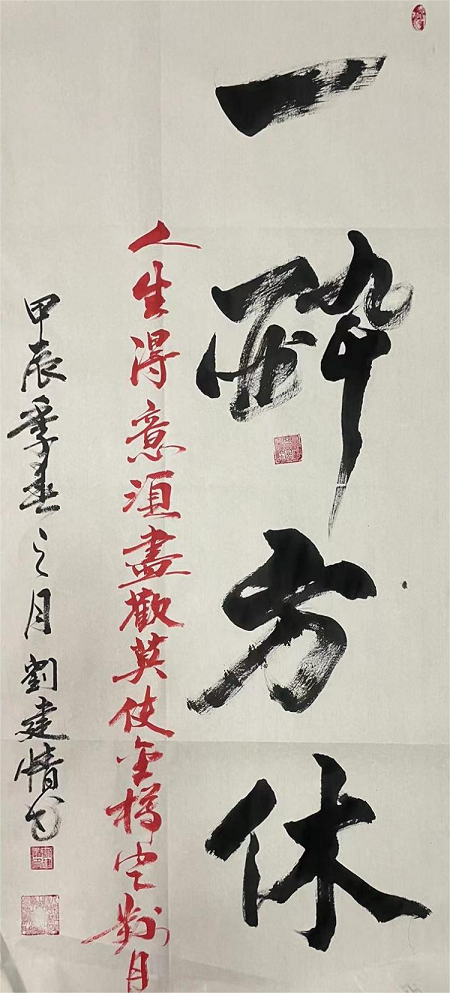 一醉方休
人生得意須盡歡莫使金樽空對月
甲辰季春之月劉建情書